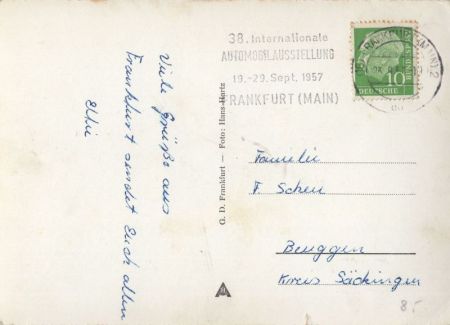 Viele Grüße aus
Frankfurt sendet Euch allen
38. Internationale
AUTOMOBILAUSSTELLUNG
19.-29. Sept. 1957
FRANKFURT (MAIN)
10
DEUTSCHE
BUNDESPOST
G. D. Frankfurt — Foto: Hans Hartz
Familie
F. Scheu
Beuggen
Kreis Säckingen
8.-